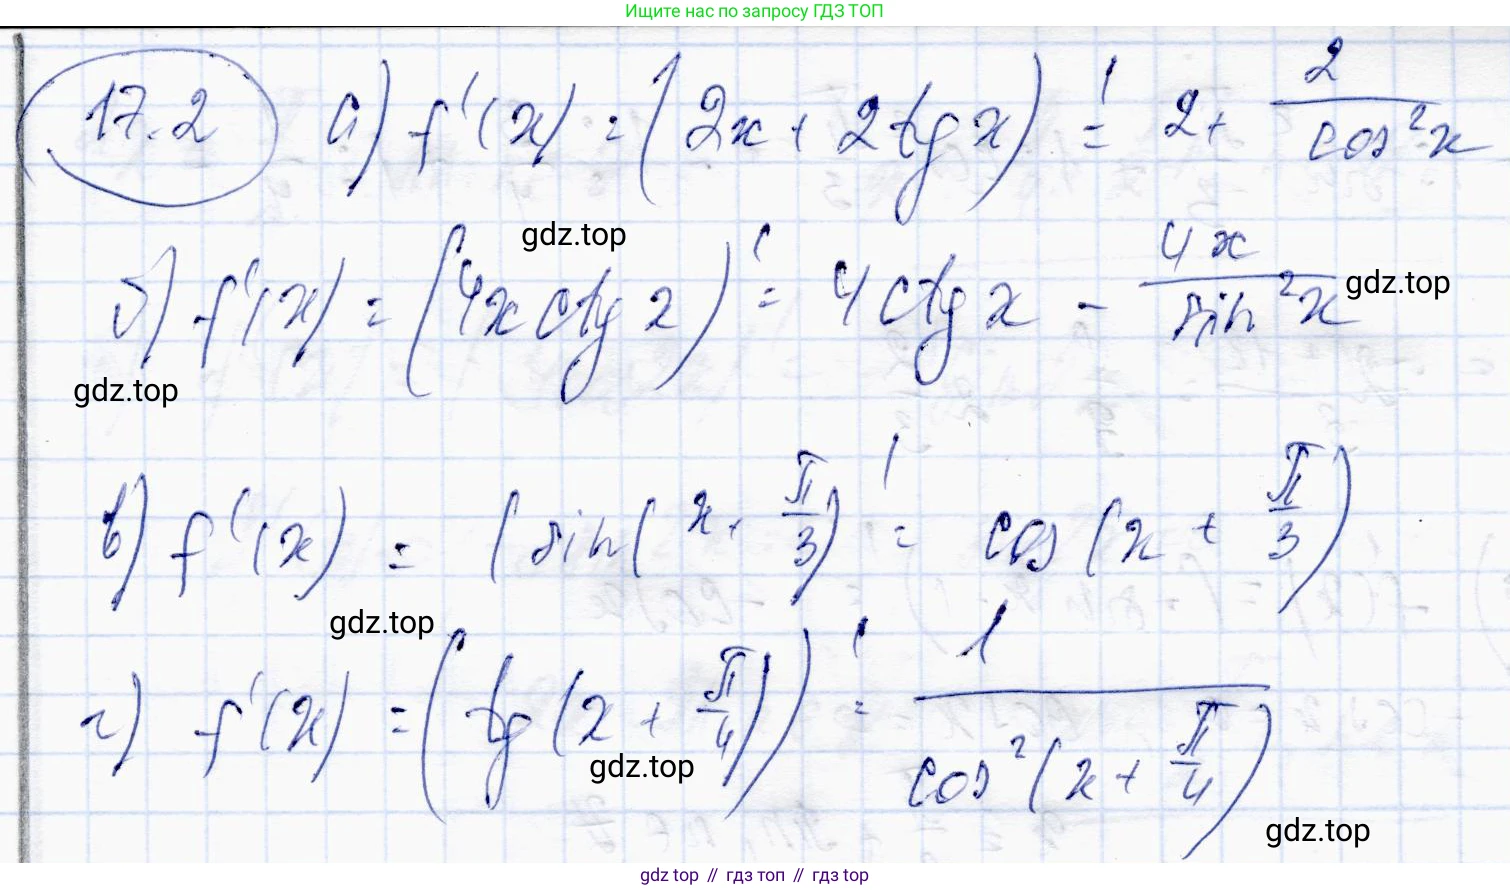 Ищите нас по запросу ГДЗ ТОП
17.2 а) f'(x) = (2x + 2tg x)' = 2 + 2/cos²x
gdz.top
б) f'(x) = (4x ctg x)' = 4 ctg x - 4x/sin²x
gdz.top
gdz.top
в) f'(x) = (sin(x + π/3)' = cos(x + π/3)
gdz.top
г) f'(x) = (tg(x + π/4))' = 1/cos²(x + π/4)
gdz.top
gdz.top
gdz top // гдз топ // гдз top